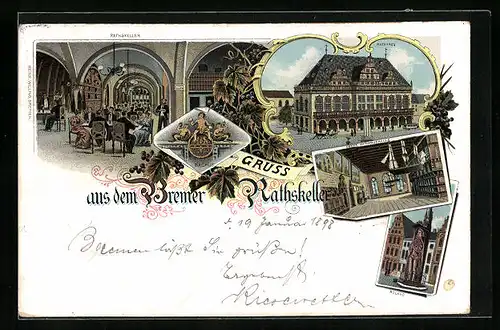 RATHSKELLER
RATHHAUS
GRUSS
aus dem Bremer Rathskeller
d. 19 Januar 1898
Bremen läßt Sie grüßen!
Ergebenst
Kiesewetter
ROLAND